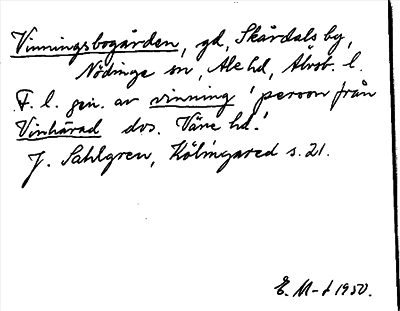 Vinningsbogården, gd, Skårdals by,
Nödinge sn, Ale hd, Älvsb. l.
F. l. gen. av vinning 'person från
Vinhärad dvs. Väne hd.'
J. Sahlgren, Kölingared s. 21.
E. M-t 1950.